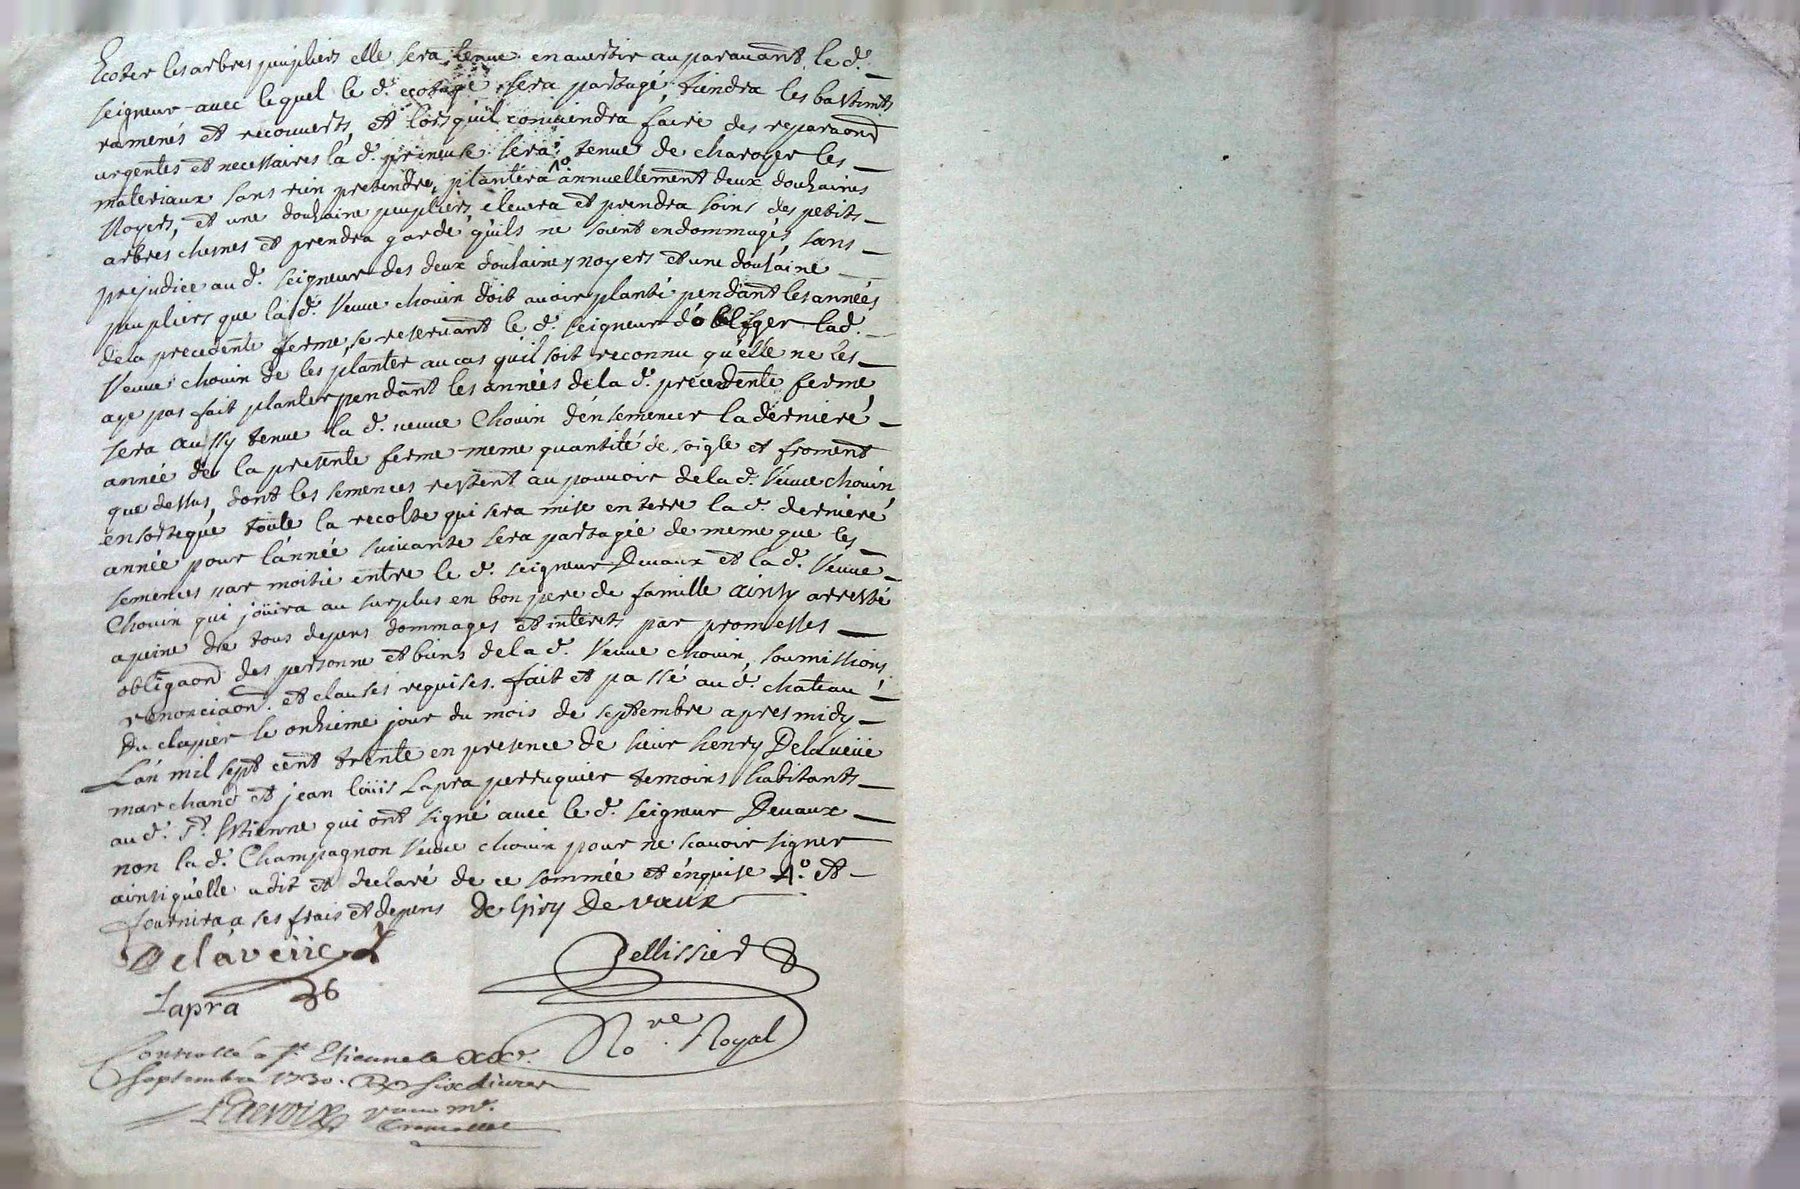 Ecoter les arbres peupliers elle sera tenue en avertir auparavant le d.
seigneur avec lequel le d. ecotage sera partagé, tiendra les bastimts
ramenés et recouverts, et lorsquil conviendra faire des reparaons
urgentes et necessaires la d. preneuse sera tenue de charoyer les
materiaux sans rien pretendre, plantera annuellement deux douhaines
Noyers, et une douhaine peupliers, elevera et prendra soins des petits
arbres chesnes et prendra garde quils ne soient endommagés, sans
prejudice au d. seigneur des deux douhaines noyers et une douhaine
peupliers que la d. Veuve chovin doit avoir planté pendant les années
de la precedente ferme, se reservant le d. seigneur d'obliger lad.
Veuve chovin de les planter au cas quil soit reconnu qu'elle ne les
aye pas fait planter pendant les années de la d. precedente ferme
sera aussy tenue la d. veuve Chovin d'ensemencer la derniere
année de la presente ferme meme quantité de soigle et froment
que dessus, dont les semences restent au pouvoir de la d. Veuve chovin
ensorteque toute la recolte qui sera mise en terre la d. derniere
année pour l'année suivante sera partagée de meme que les
semences par moitié entre le d. seigneur Devaux et la d. Veuve
Chovin qui joüira au surplus en bon pere de famille ainsy arresté
a peine de tous depens dommages et interets par promesses
obligaons des personne et biens de la d. Veuve chovin, soumissions
renonciaons et clauses requises. fait et passé au d. chateau
Du clapier le onhieme jour du mois de septembre apres midy
L'an mil sept cent trente en presence de sieur henry Delaveüe
marchand et jean loüis Lapra perruquier temoins habitants
au d. St. Estienne qui ont signé avec le d. seigneur Devaux
non la d. Champagnon Veuve chovin pour ne scavoir signer
ainsi qu'elle a dit et declaré de ce sommée et enquise 1° et
fournira a ses frais et depens De Giry De vaux
Delaveüe
Pellissier
Lapra
Nore. Royal
Controllé a St. Etienne le
Septembre 1730. Rx six livres